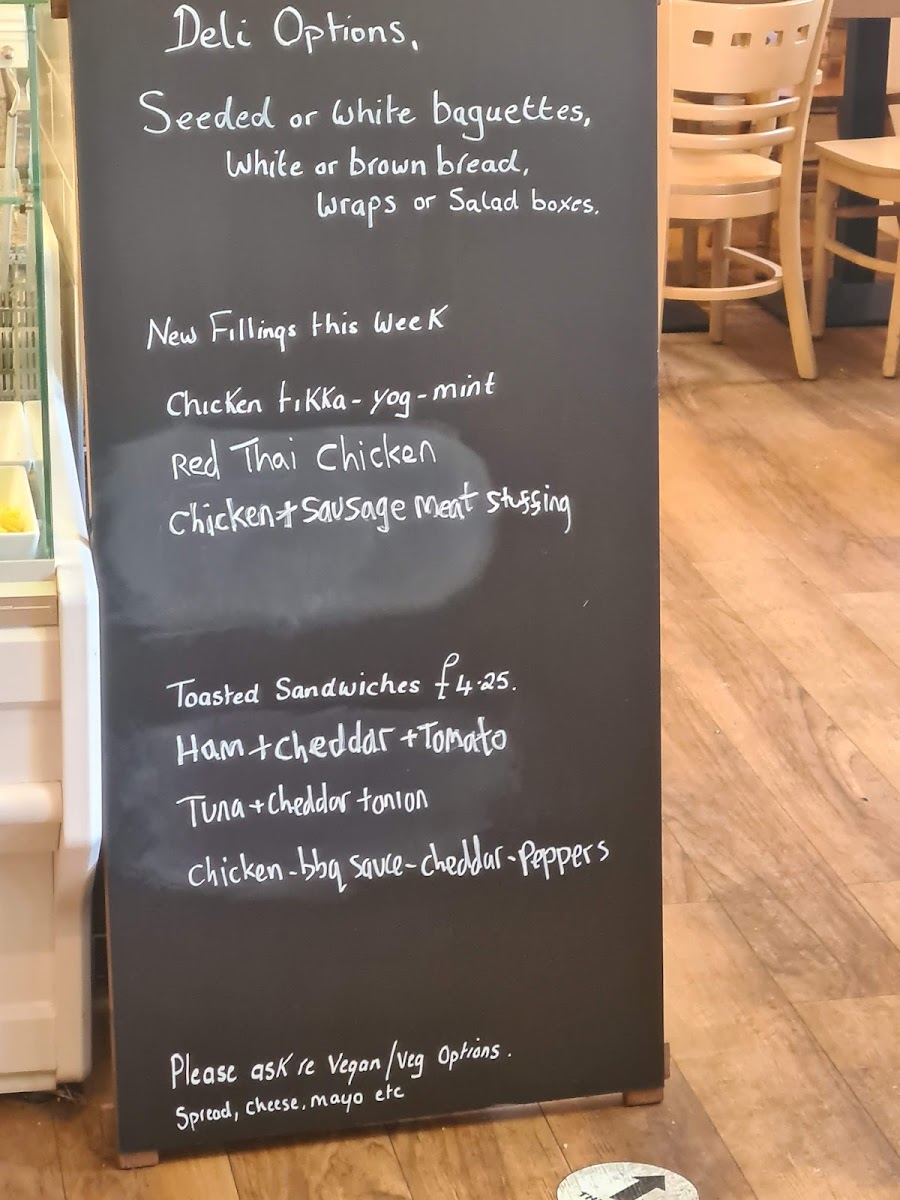 Deli Options,
Seeded or white baguettes,
White or brown bread,
Wraps or Salad boxes.
New Fillings this Week
Chicken tikka - yog - mint
Red Thai Chicken
Chicken + Sausage meat stuffing
Toasted Sandwiches £4.25.
Ham + cheddar + Tomato
Tuna + cheddar + onion
Chicken - bbq sauce - cheddar - Peppers
Please ask re Vegan/Veg Options.
Spread, cheese, mayo etc